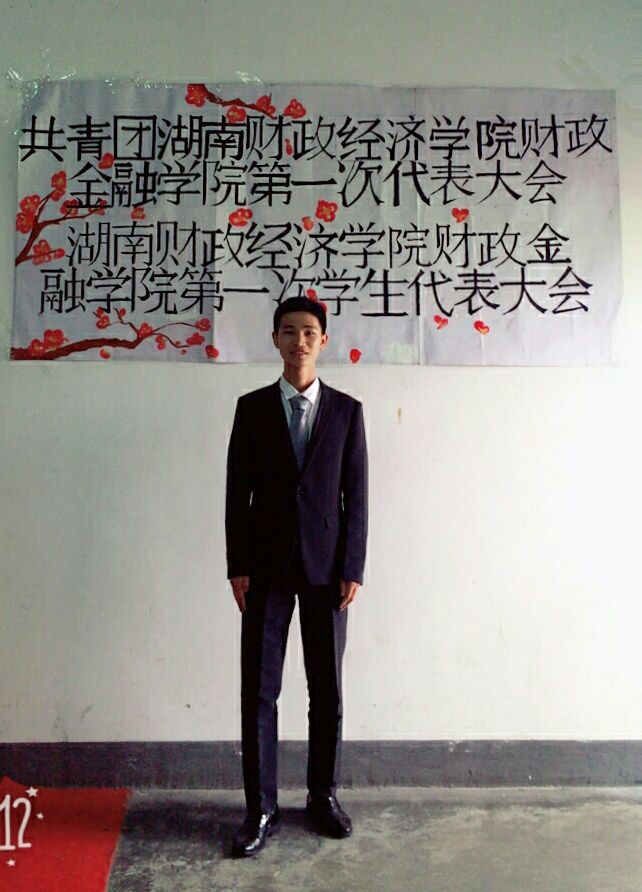 共青团湖南财政经济学院财政
金融学院第一次代表大会
湖南财政经济学院财政金
融学院第一次学生代表大会
12